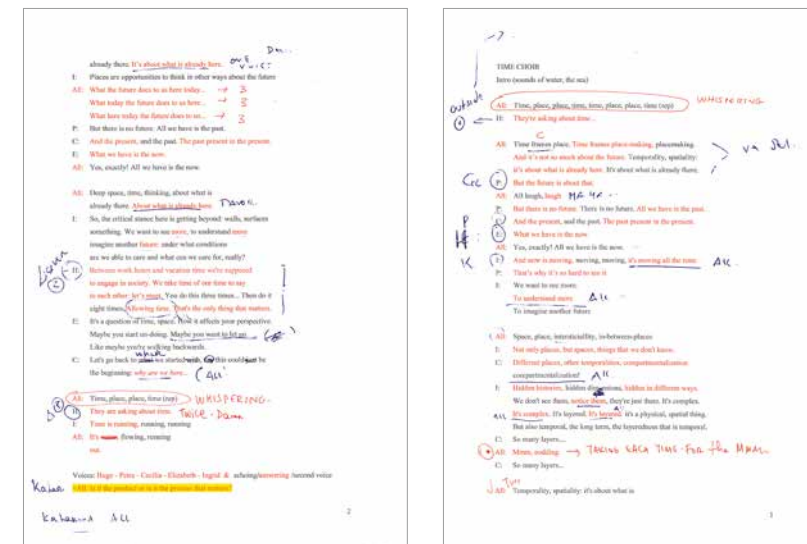 already there. It's about what is already here.
E: Places are opportunities to think in other ways about the future
All: What the future does to us here today... → 3
What today the future does to us here... → 3
What here today the future does to us... → 3
P: But there is no future. All we have is the past.
C: And the present, and the past. The past present in the present.
E: What we have is the now.
All: Yes, exactly! All we have is the now.
All: Deep space, time, thinking, about what is
already there. About what is already here.
I: So, the critical stance here is getting beyond: walls, surfaces
something. We want to see more, to understand more
imagine another future: under what conditions
are we able to care and what can we care for, really?
H: Between work hours and vacation time we're supposed
to engage in society. We take time of our time to say
to each other: let's meet. You do this three times... Then do it
eight times. Allowing time. That's the only thing that matters.
E: It's a question of time, space. How it affects your perspective.
Maybe you start un-doing. Maybe you want to let go
Like maybe you're walking backwards.
C: Let's go back to we started with, this could just be
the beginning: why are we here... (All)
All: Time, place, place, time (rep) WHISPERING
H: They are asking about time. TWICE
I: Time is running, running, running
All: It's flowing, running
out.
Voices: Hugo - Petra - Cecilia - Elizabeth - Ingrid & echoing/answering /second voice
+All: Is it the product or is it the process that matters?
Katarina All
2
TIME CHOIR
Intro (sounds of water, the sea)
outside
All: Time, place, place, time, time, place, place, time (rep) WHISPERING
H: They're asking about time...
C
All: Time frames place. Time frames place-making, placemaking.
And it's not so much about the future. Temporality, spatiality:
it's about what is already here. It's about what is already there.
P: But the future is about that.
All: All laugh, laugh
P: But there is no future. There is no future. All we have is the past.
P C: And the present, and the past. The past present in the present.
E: What we have is the now
All: Yes, exactly! All we have is the now.
K I: And now is moving, moving, moving, it's moving all the time. All
P: That's why it's so hard to see it
E: We want to see more
To understand more All
To imagine another future
All: Space, place, intersticiallity, in-between-places
I: Not only places, but spaces, things that we don't know.
C: Different places, other temporalities, compartmentalization
compartmentalization! All
E: Hidden between, hidden dimensions, hidden in different ways.
We don't see them, notice them, they're just there. It's complex.
All It's complex. It's layered. It's layered, it's a physical, spatial thing.
But also temporal, the long term, the layeredness that is temporal.
C: So many layers...
All: Mmm, nodding → TAKING EACH TIME FOR the MMM
C: So many layers...
All: Temporality, spatiality: it's about what is
1